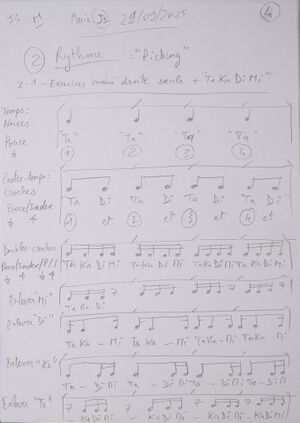 29/09/2025
2 Rythme : "Picking"
2-1- Exercices main droite seule + "Ta Ka Di Mi"
Temps:
Noires
Pouce
"Ta" "Ta" "Ta" "Ta"
1 2 3 4
Contre-temps:
Croches
Pouce/Index
Ta Di Ta Di Ta Di Ta Di
1 et 2 et 3 et 4 et
Doubles-croches
Pouce/Index/P/I
Ta Ka Di Mi Ta Ka Di Mi Ta Ka Di Mi Ta Ka Di Mi
Enlever "Mi"
Ta Ka Di
Enlever "Di"
Ta Ka - Mi Ta Ka - Mi Ta Ka - Mi Ta Ka Mi
Enlever "Ka"
Ta - Di Mi Ta - Di Mi Ta - Di Mi Ta - Di Mi
Enlever "Ta"
- Ka Di Mi - Ka Di Mi - Ka Di Mi - Ka Di Mi